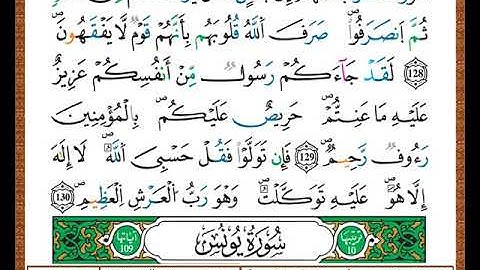 ثُمَّ اَنصَرَفُواْ صَرَفَ اَللَّهُ قُلُوبَهُم بِأَنَّهُمْ قَوْمٌ لَّا يَفْقَهُونَ
128 لَقَدْ جَآءَكُمْ رَسُولٌ مِّنْ أَنفُسِكُمْ عَزِيزٌ
عَلَيْهِ مَا عَنِتُّمْ حَرِيصٌ عَلَيْكُم بِالْمُؤْمِنِينَ
رَءُوفٌ رَّحِيمٌ 129 فَإِن تَوَلَّوْاْ فَقُلْ حَسْبِيَ اَللَّهُ لَا إِلَٰهَ
إِلَّا هُوَ عَلَيْهِ تَوَكَّلْتُ وَهُوَ رَبُّ اُلْعَرْشِ اِلْعَظِيمِ 130
ترتيبها 10 سُورَةُ يُونُسَ آياتها 109